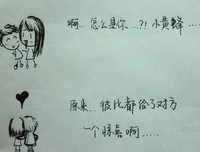 啊... 怎么是你...?! 小黄蜂....
原来... 彼此都给了对方
一个惊喜啊.....